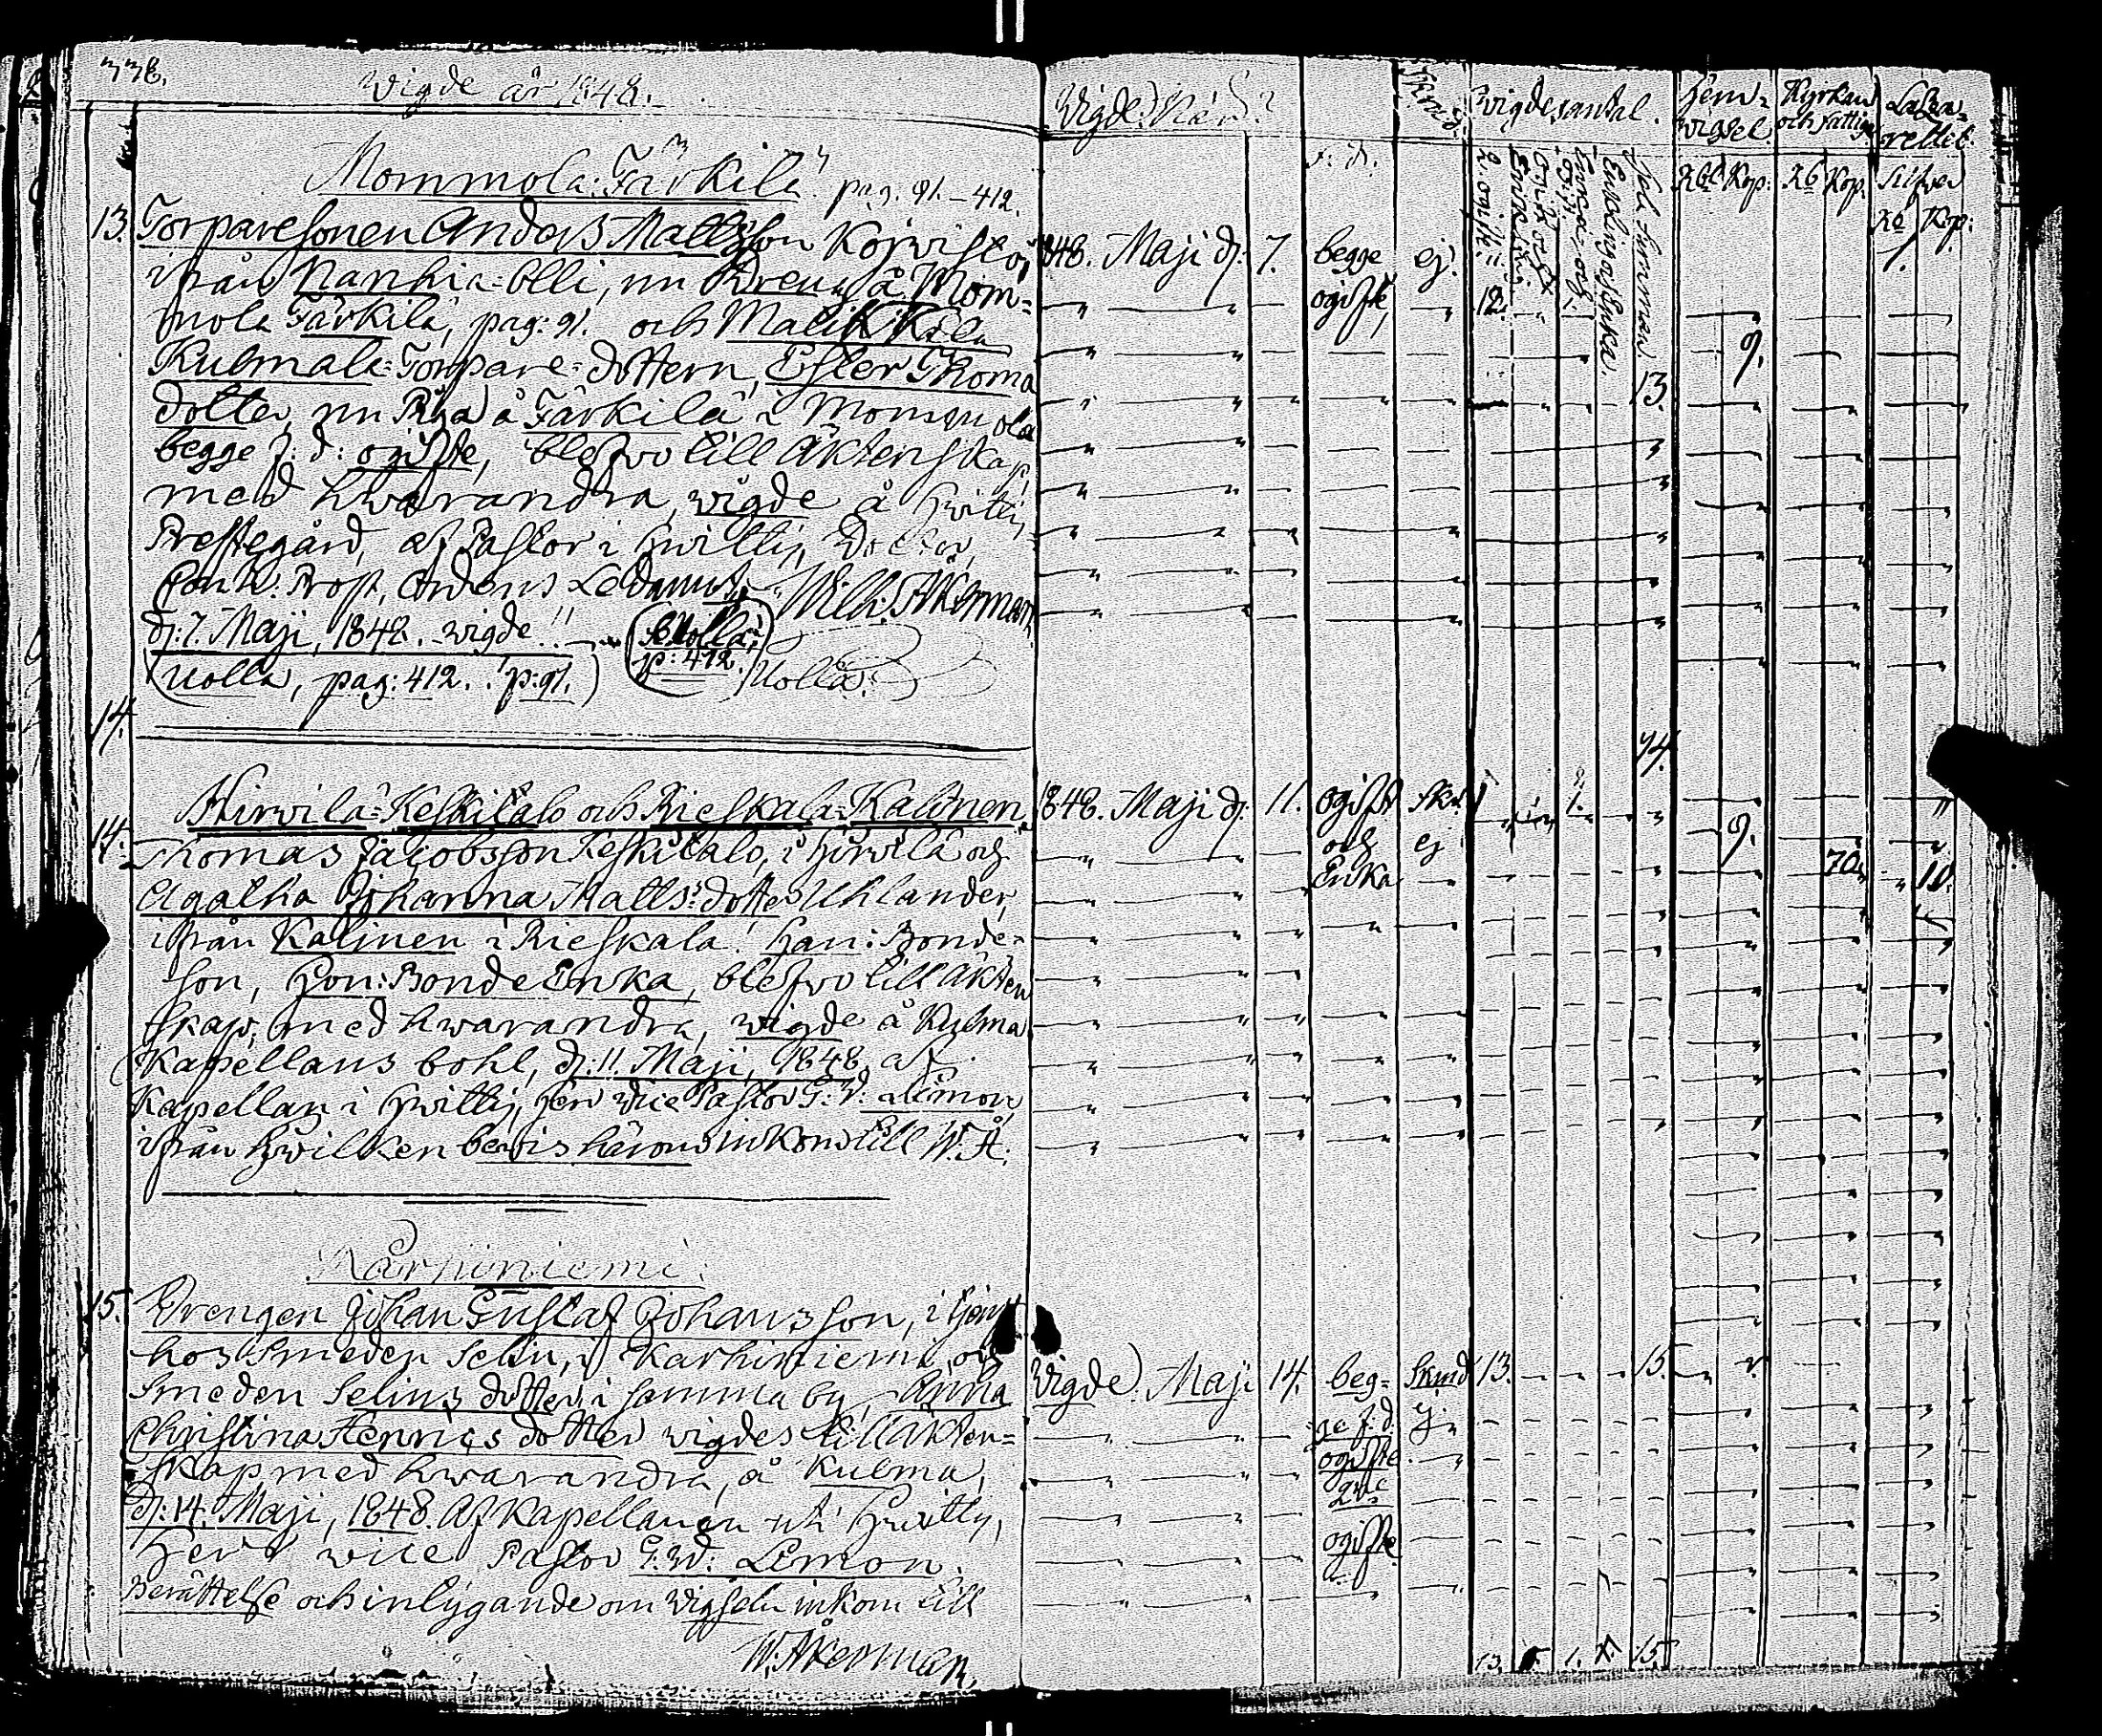 338.
Wigde år 1848.
Mommola: Färkilä pag. 91.–412.
13. Torparesonen Anders Mattsson Koiwisto,
ifrån Nanhia-Olli, nu Dreng å Mom-
mola Färkilä, pag: 91. och
Kulmala-Torpare-dottern, Ester Thoma
dotter, nu Piga å Färkilä i Mommola
begge f: d: ogifte, blefwo till Äktenskap
med hwarandra, wigde å Hwittis
Prestegård, af Pastor i Hwittis, Doctor,
Cont. Prost, Ordens Ledamot, Wilh: Åkerman
d: 7. Maji, 1848. wigde!!
(Uolla, pag: 412. p: 91.) p: 412. Uolla.
14.
Hirwilä-Keskitalo och Rieskala-Kalinen
14. Thomas Jacobsson Keskitalo, i Hirwilä och
Agatha Johanna Matts: dotter Uhlander,
ifrån Kalinen i Rieskala! Han: Bonde-
son, Hon: BondeEnka, blefwo till äkten
skap, med hwarandra, wigde å Kulma
Kapellans bohl, d: 11. Maji, 1848, af
Kapellan i Hwittis, Herr Vice Pastor G: W: Limon,
ifrån hwilken bewis härom inkom till W. Å.
Karhiniemi
15. Drengen Johan Gustaf Johansson, i
hos Smeden Selin, i Karhiniemi, och
Smeden Selins dotter, i samma by, Anna
Christina Henrics dotter wigdes till äkten-
skap med hwarandra, å Kulma,
d: 14. Maji, 1848. Af Kapellanen uti Hwittis,
Herr Vice Pastor G: W: Limon.
Berättelse och inlygande om Vigseln inkom till
W. Åkerman.
Vigde: När?
Wigdes antal.
Hem-
wigsel.
Kyrkan
och fattige
Laza-
rettet:
f: d.
Rbl Kop: Rb Kop. Silfver
Rb Kop:
Hela Summan
1848. Maji d: 7. begge ej. 1.
ogifte, 12.
9.
13.
14.
1848. Maji d: 11. ogift 1.
och ej 9.
Enka 70. 10.
Vigde. Maji 14. beg- 13. 15.
ge f: d. ej
ogifte
ogifte
13. 1. 15.